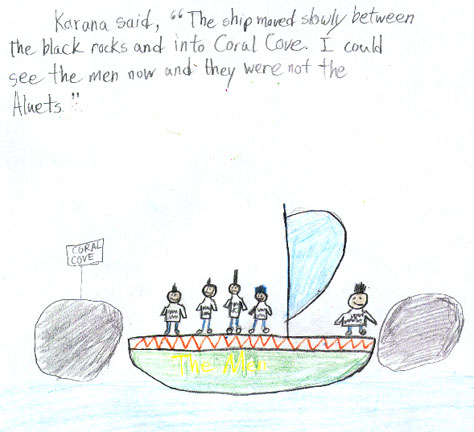 Karana said, "The ship moved slowly between
the black rocks and into Coral Cove. I could
see the men now and they were not the
Aluets."
CORAL
COVE
The Men